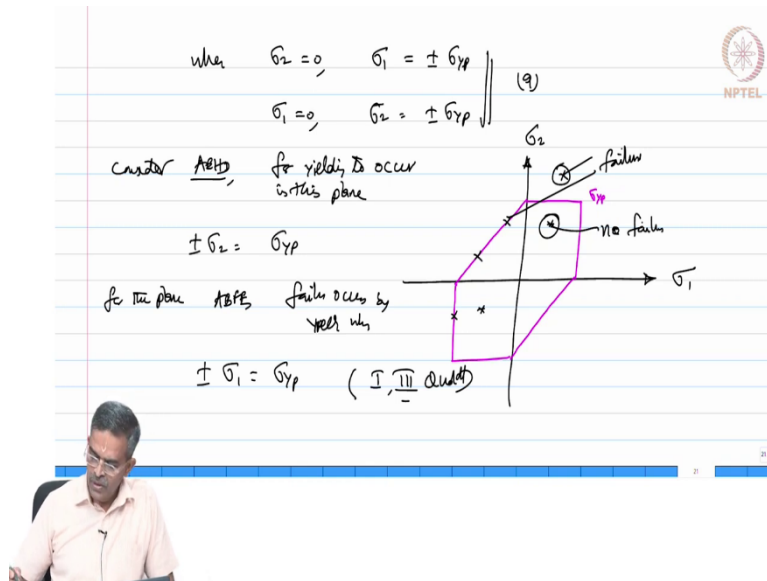 when σ2 = 0, σ1 = ± σyp
σ1 = 0, σ2 = ± σyp
(9)
NPTEL
consider ABHD, for yielding to occur
is this plane
± σ2 = σyp
for the plane ABFE, failure occurs by
yield when
± σ1 = σyp (I, III Quadt)
σ2
failure
σyp
no failure
σ1
21
21